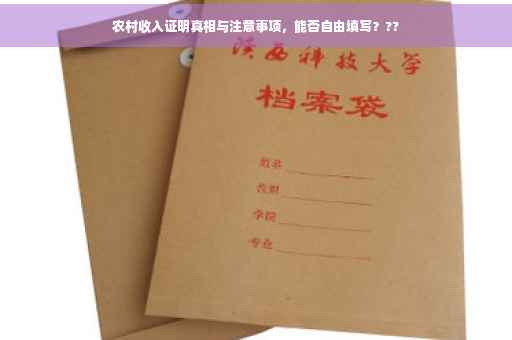 农村收入证明真相与注意事项，能否自由填写？??
陕西科技大学
档案袋
姓名
学院
专业